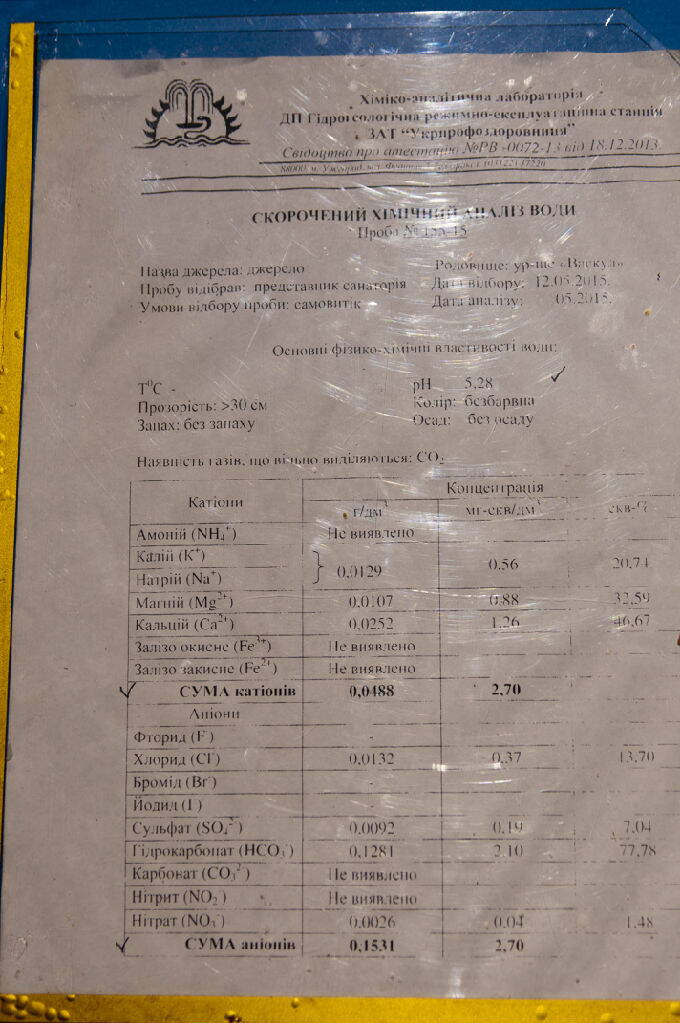 Хіміко-аналітична лабораторія
ДП Гідрогеологічна режимно-експлуатаційна станція
ЗАТ “Укрпрофоздоровниця”
Свідоцтво про атестацію №РВ -0072-13 від 18.12.2013.
88000, м. Ужгород,
СКОРОЧЕНИЙ ХІМІЧНИЙ АНАЛІЗ ВОДИ
Проба №
Назва джерела: джерело Родовище: ур-ще «Васкул»
Пробу відібрав: представник санаторія Дата відбору: 12.05.2015.
Умови відбору проби: самовитік Дата аналізу: 05.2015.
Основні фізико-хімічні властивості води:
T⁰C - pH 5,28
Прозорість: >30 см Колір: безбарвна
Запах: без запаху Осад: без осаду
Наявність газів, що вільно виділяються: CO₂
Катіони Концентрація
г/дм³ мг-екв/дм³ екв-%
Амоній (NH₄⁺) Не виявлено
Калій (K⁺)
Натрій (Na⁺) 0,0129 0.56 20,74
Магній (Mg²⁺) 0,0107 0.88 32,59
Кальцій (Ca²⁺) 0,0252 1.26 46,67
Залізо окисне (Fe³⁺) Не виявлено
Залізо закисне (Fe²⁺) Не виявлено
СУМА катіонів 0,0488 2,70
Аніони
Фторид (F⁻) -
Хлорид (Cl⁻) 0,0132 0,37 13,70
Бромід (Br⁻) -
Йодид (I⁻) -
Сульфат (SO₄²⁻) 0,0092 0,19 7,04
Гідрокарбонат (HCO₃⁻) 0,1281 2,10 77,78
Карбонат (CO₃²⁻) Не виявлено
Нітрит (NO₂⁻) Не виявлено
Нітрат (NO₃⁻) 0,0026 0,04 1,48
СУМА аніонів 0,1531 2,70